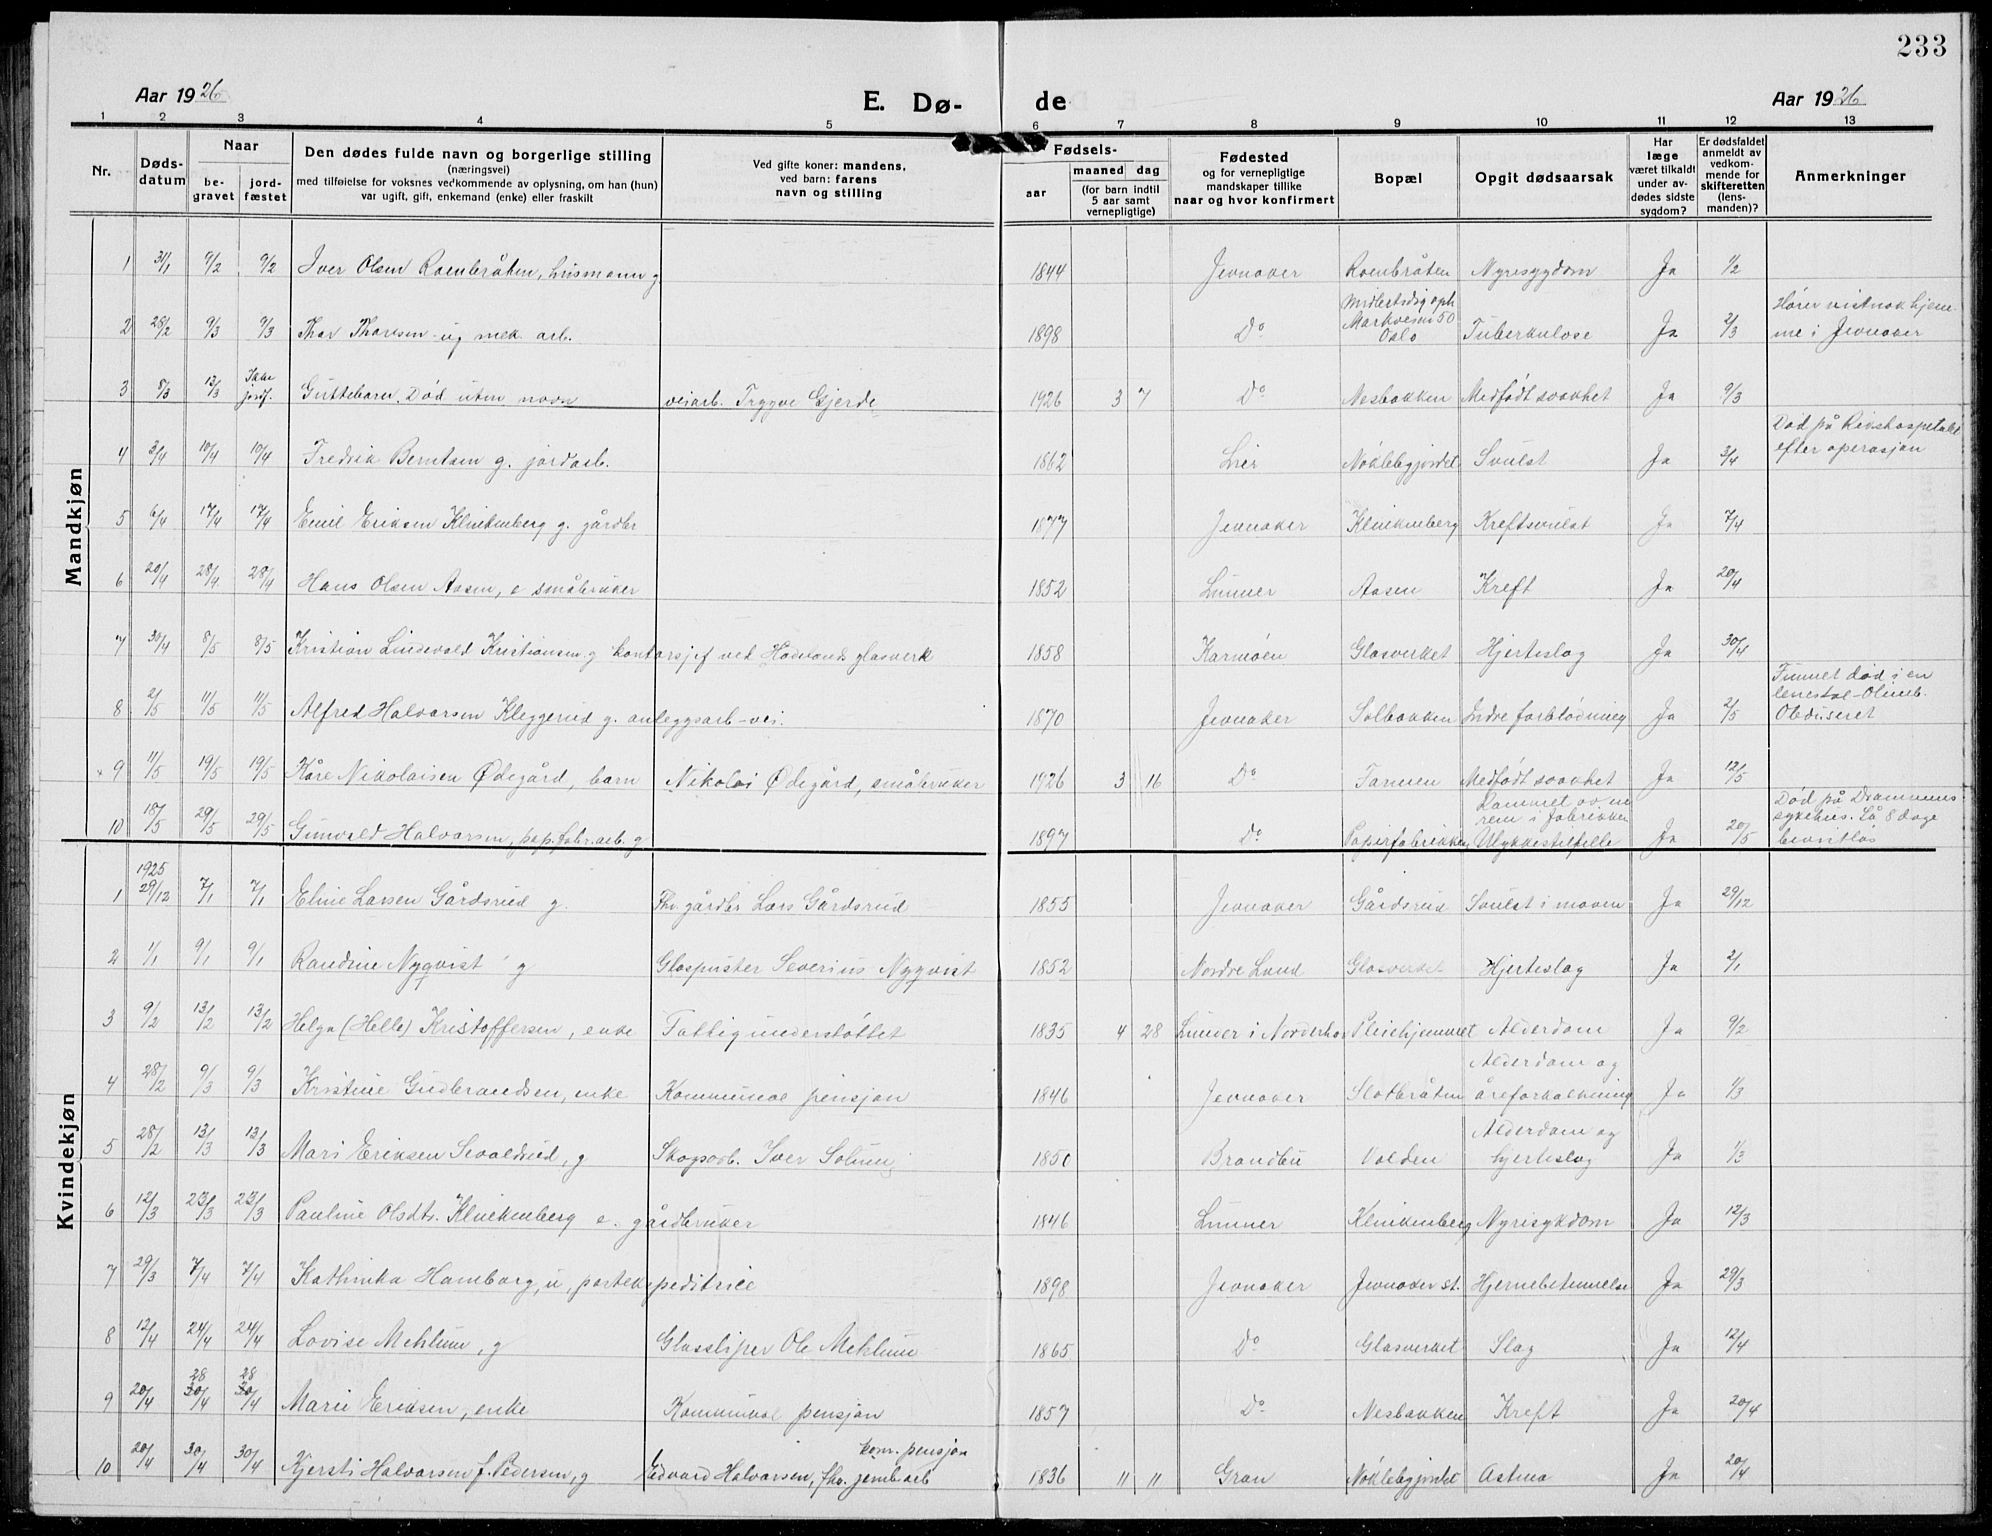 233
Aar 1926
E. Dø-
de
Aar 1926
1 2 3 4 5 6 7 8 9 10 11 12 13
Nr.
Døds-
datum
Naar
be-
gravet
jord-
fæstet
Den dødes fulde navn og borgerlige stilling
(næringsvei)
med tilføielse for voksnes vedkommende av oplysning, om han (hun)
var ugift, gift, enkemand (enke) eller fraskilt
Ved gifte koner: mandens,
ved barn: farens
navn og stilling
Fødsels-
aar
maaned dag
(for barn indtil
5 aar samt
vernepligtige)
Fødested
og for vernepligtige
mandskaper tillike
naar og hvor konfirmert
Bopæl
Opgit dødsaarsak
Har
læge
været tilkaldt
under av-
dødes sidste
sygdom?
Er dødsfaldet
anmeldt av
vedkom-
mende for
skifteretten
(lens-
manden)?
Anmerkninger
Mandkjøn
1 31/1 9/2 9/2 Iver Olsen Roenbråten, husmann g 1844 Jevnaker Roenbråten Nyresygdom Ja 1/2
2 28/2 9/3 9/3 Thor Thoresen ug mek. arb. 1898 Do Midlertidig oph
Markveien 50
Oslo Tuberkulose Ja 2/3 Hører vistnok hjem-
me i Jevnaker
3 8/3 13/3 Ikke
jordf. Guttebarn. Død uten navn veiarb. Trygve Gjerde 1926 3 7 Do Nesbakken Medfødt svakhet Ja 9/3
4 3/4 10/4 10/4 Fredrik Berntsen g. jordarb. 1862 Lier Nøklebygjordet Svulst Ja 3/4 Død på Rikshospitalet
efter operasjon
5 6/4 17/4 17/4 Emil Eriksen Klinkenberg g. gårdbr 1877 Jevnaker Klinkenberg Kreftsvulst Ja 7/4
6 20/4 28/4 28/4 Hans Olsen Aasen, e småbruker 1852 Lunner Aasen Kreft Ja 20/4
7 30/4 8/5 8/5 Kristian Lindevald Kristiansen g kontorsjef ved Hadelands glasverk 1858 Karmøen Glasverket Hjerteslag Ja 30/4
8 2/5 11/5 11/5 Alfred Halvorsen Kleggerud g. anleggsarb - vei. 1870 Jevnaker Solbakken Indre forblødning Ja 2/5 Funnet død i en
lenestol - Olimb.
Obduseret
9 11/5 19/5 19/5 Kåre Nikolaisen Ødegård, barn Nikolai Ødegård, småbruker 1926 3 16 Do Farmen Medfødt svakhet Ja 12/5
10 18/5 29/5 29/5 Gunvald Halvorsen, pap.fabr.arb. g 1897 Do Papirfabrikken Rammet av en
rem i fabrikken
Ulykkestilfelle Ja 20/5 Død på Drammens
sykehus. Lå 8 dage
bevistløs
Kvindekjøn
1 1925
29/12 7/1 7/1 Eline Larsen Gårdsrud g. Fhv. gårdbr Lars Gårdsrud 1855 Jevnaker Gårdsrud Svulst i maven Ja 29/12
2 1/1 9/1 9/1 Randine Nyqvist g Glaspuster Severius Nyqvist 1852 Nordre Land Glasverket Hjerteslag Ja 2/1
3 9/2 13/2 13/2 Helga (Helle) Kristoffersen, enke Fattigunderstøttet 1835 4 28 Lunner i Norderhov Pleiehjemmet Alderdom Ja 9/2
4 28/2 9/3 9/3 Kristine Gudbrandsen, enke Kommunal pensjon 1846 Jevnaker Slotbråten Alderdom og
åreforkalkning Ja 1/3
5 28/2 13/3 13/3 Mari Eriksen Sevaldrud, g Skogsarb. Iver Solum 1850 Brandbu Volden Alderdom og
hjerteslag Ja 1/3
6 12/3 23/3 23/3 Pauline Olsdtr. Klinkenberg e. gårdbruker 1846 Lunner Klinkenberg Nyresykdom Ja 12/3
7 29/3 7/4 7/4 Kathinka Hamborg, u, postekspeditrice 1898 Jevnaker Jevnaker st. Hjernebetennelse Ja 29/3
8 12/4 24/4 24/4 Lovise Mehlum, g Glassliper Ole Mehlum 1865 Do Glasverket Slag Ja 12/4
9 20/4 28
30/4 28
30/4 Marie Eriksen, enke Kommunal pensjon 1857 Do Nesbakken Kreft Ja 20/4
10 20/4 30/4 30/4 Kjersti Halvorsen f. Pedersen, g Edvard Halvorsen, fhv. jernb.arb kom. pensjon 1836 11 11 Gran Nøklebygjordet Astma Ja 20/4